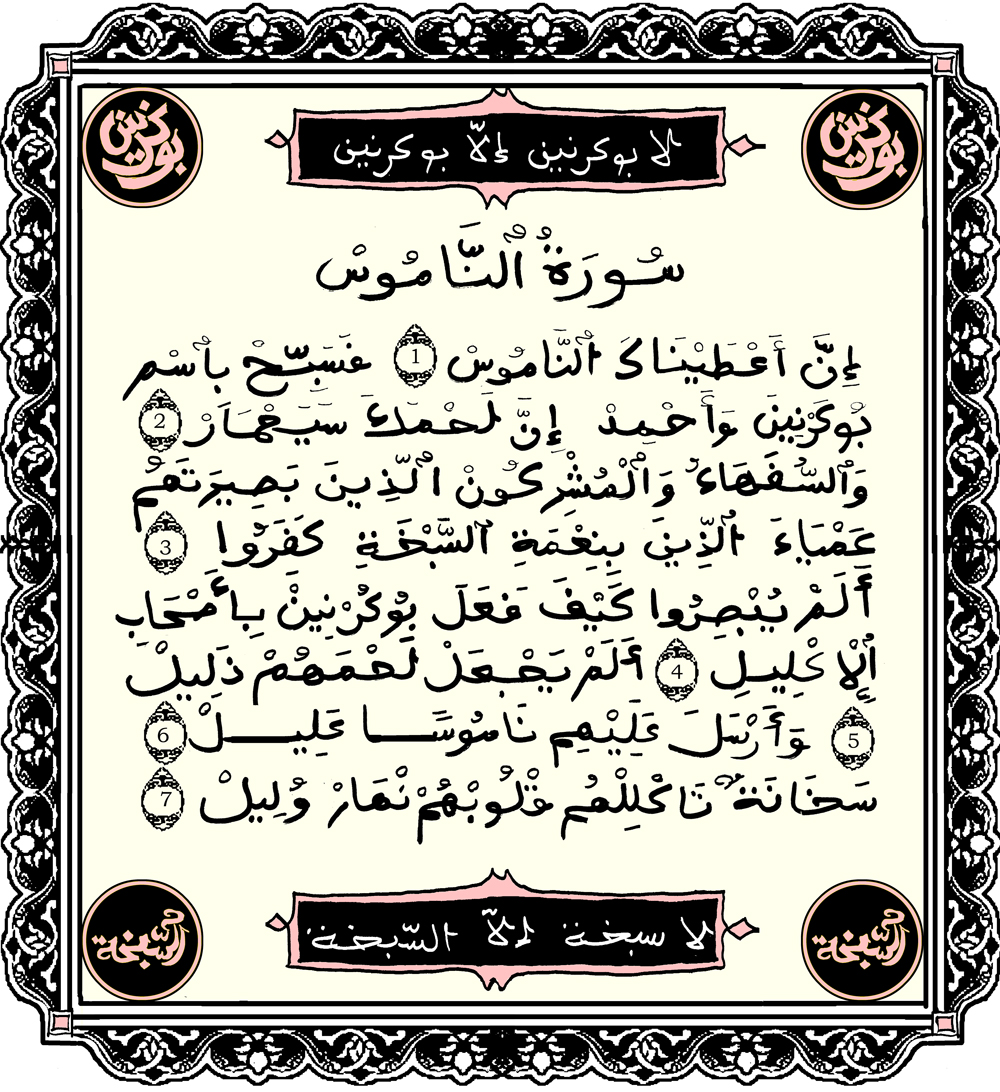 بوكرنين
لا بوكرنين إلاّ بوكرنين
بوكرنين
سُورَةُ ٱلنَّامُوسْ
إِنَّ أَعْطَيْنَاكَ ٱلنَّامُوسْ 1 فَسَبِّحْ بِٱسْمِ
بُوكَرْنِينَ وَأَحْمِدْ إِنَّ لَحْمَكَ سَيَحْمَارْ 2
وَٱلسُّفَهَاءُ وَٱلْمُشْرِكُونْ ٱلَّذِينَ بَصِيرَتَهُمْ
عَمْيَاءَ ٱلَّذِينَ بِنِعْمَةِ ٱلسَّبْخَةِ كَفَرُوا 3
أَلَمْ يُبْصِرُوا كَيْفَ فَعَلَ بُوكُرْنِينْ بِأَصْحَابِ
ٱلْإِكْلِيلِ 4 أَلَمْ يَجْعَلْ لَحْمَهُمْ ذَلِيلْ
5 وَأَرْسَلَ عَلَيْهِمْ نَامُوسًا عَلِيلْ 6
سَخَانَةٌ تَاكْلِلْهُمْ قْلُوبْهُمْ نْهَارْ وُلِيلْ 7
السّبخة
لا سبخة إلاّ السّبخة
السّبخة